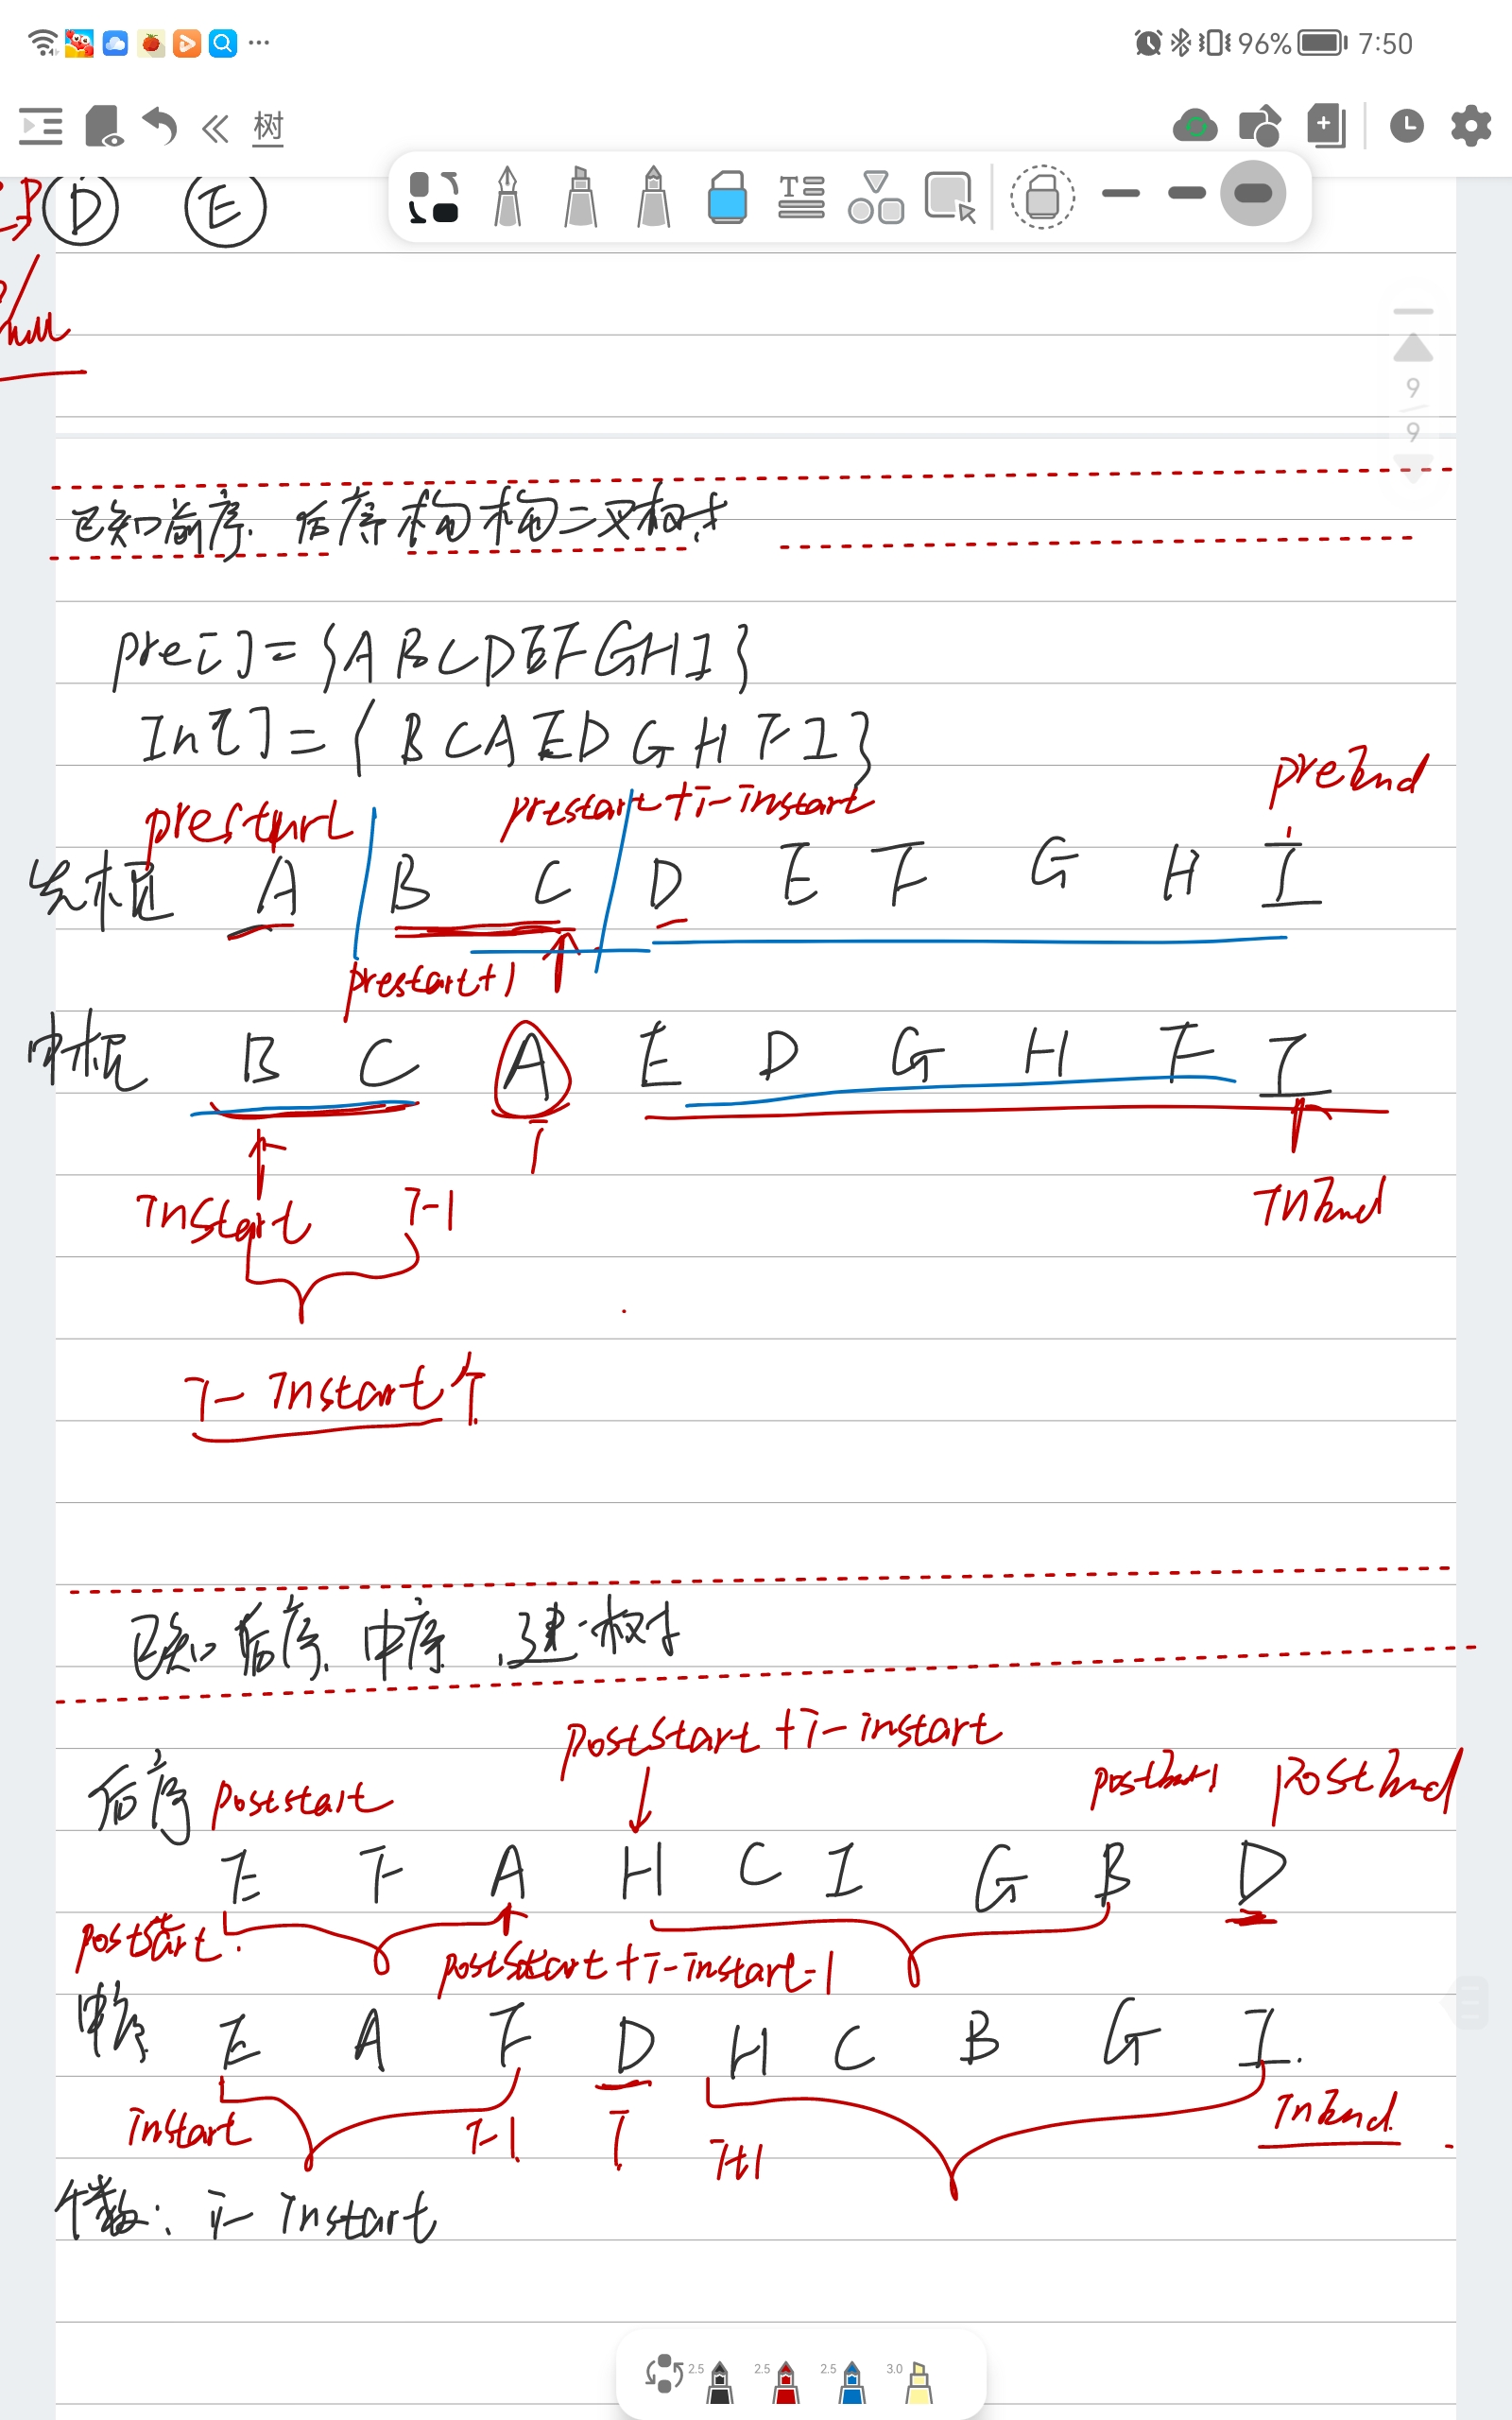 96% 7:50
树
D E
null
9
9
已知前序. 后序构构二叉树
pre[]={ABCDEFGHI}
In[]={BCAEDGHFI}
preEnd
prestart prestart+i-instart
先根 A B C D E F G H I
prestart+1
中根 B C A E D G H F I
i
Instart i-1 InEnd
i-Instart个
已知后序.中序.建树
poststart+i-instart
后序 poststart postEnd-1 postEnd
E F A H C I G B D
poststart. poststart+i-instart-1
中序 E A F D H C B G I.
instart i-1. i. i+1 InEnd.
个数: i-Instart
2.5 2.5 2.5 3.0